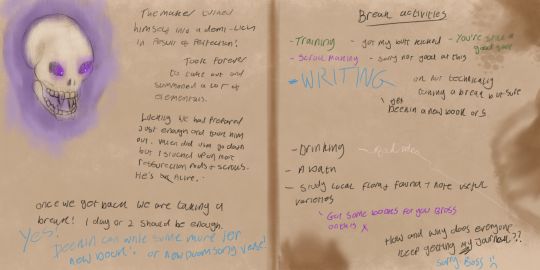 The maker turned
himself into a demi-lich
in pursuit of Perfection!
Took forever
to take out and
summoned a lot of
elementals.
Luckily we had prepared
just enough and took him
out. Mitch did
go down
but I stocked upon more
resurrection rods + scrolls.
He's alive.
once we got back we are taking a
break! 1 day or 2 should be enough.
Yes!
Deekin can write some more for
new book! or new doom song verse!
Break activities
- Training - got my butt kicked - You're still a
good
- Scroll Making - Sorry not good at this
- WRITING
ok not technically
during a break but sure
get
Deekin a new book or 5
- Drinking - Bad idea
- A Bath
- Study Local Flora + Fauna + note useful
varieties
Got some books for you Boss
on this x
How and why does everyone
keep getting my Journal??
Sorry Boss !!